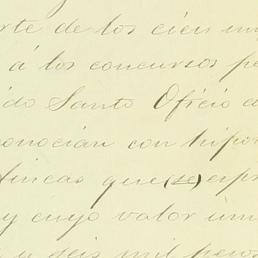 rte de los cien mi
á los concursos pe
do Santo Oficio d
onocian con hipo
fincas que (se) espr
y cuyo valor im
y seis mil pesos